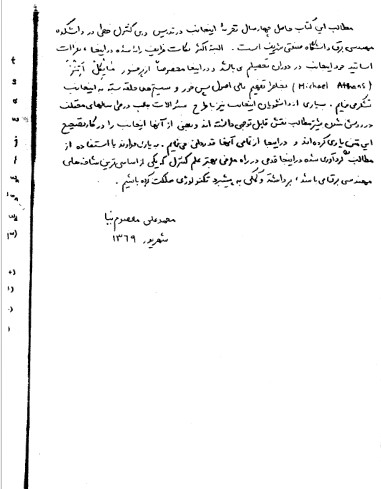 مطالب این کتاب حاصل چهار سال تجربهٔ اینجانب در تدریس درس کنترل خطی در دانشکده
مهندسی برق دانشگاه صنعتی شریف است. البته اکثر نکات ارائه شده در اینجا
اساتید خود اینجانب در دوران تحصیلم می‌باشد و در اینجا مخصوصاً از پرفسور مایکل
(Michael Athans) بخاطر تفهیم اصول پس‌خور و سیستم‌های حلقه بسته به اینجانب
تشکر می‌نمایم. بسیاری از دانشجویان اینجانب نیز با طرح سؤالات جالب در طی سالهای مختلف
در روشن شدن بیشتر مطالب نقش قابل توجهی داشته‌اند و بعضی از آنها اینجانب را در کار تصحیح
این متن یاری کرده‌اند و در اینجا از تمامی آنها قدردانی می‌نمایم. با استفاده از
مطالب گردآوری شده در اینجا قدمی در راه معرفی بهتر علم کنترل که یکی از اساسی‌ترین شاخه‌های
مهندسی برق می‌باشد، برداشته و کمکی به پیشبرد تکنولوژی مملکت کرده باشیم.
محمدعلی معصوم‌نیا
شهریور ۱۳۶۹